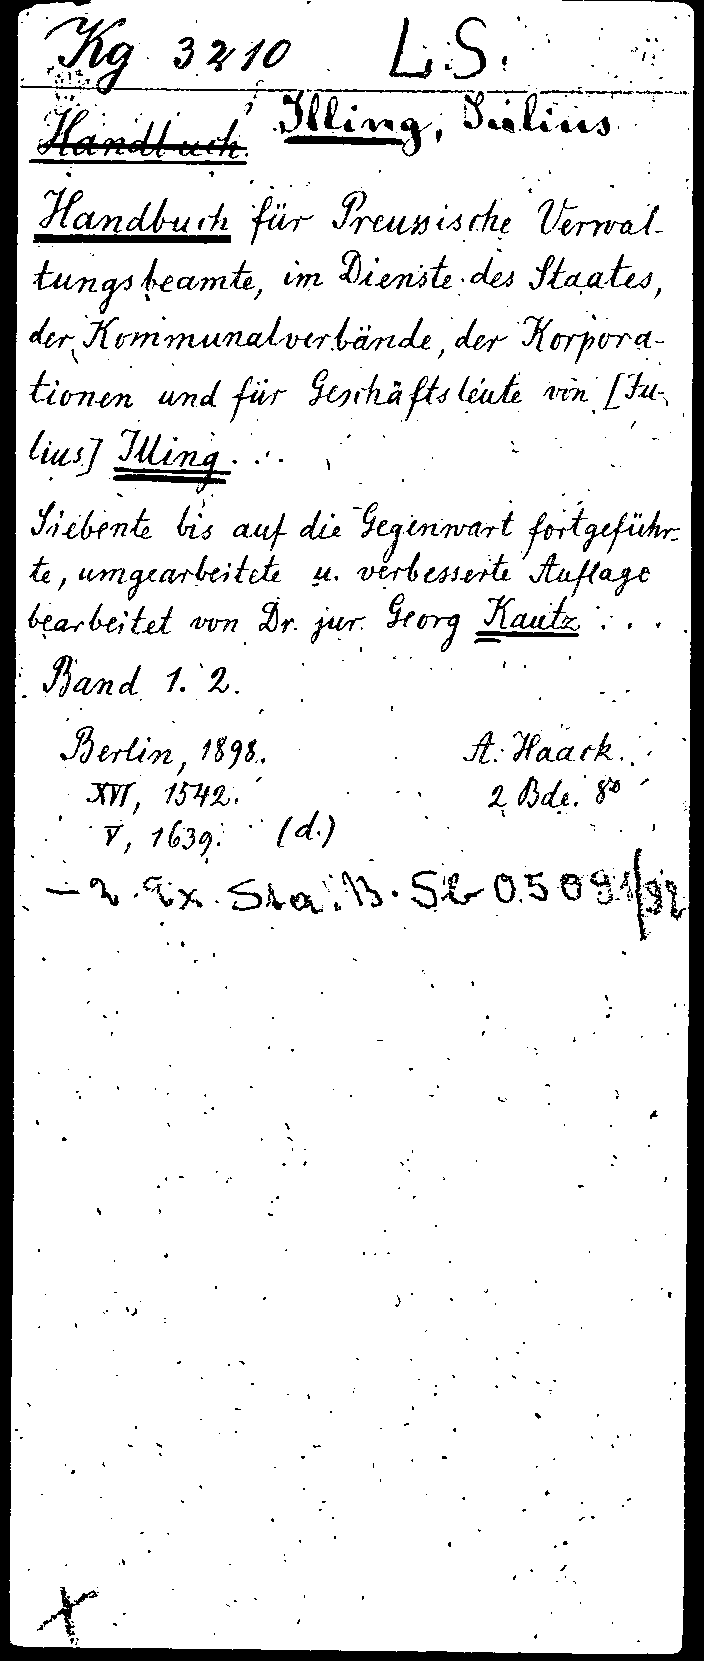 Kg 3210 L.S.
Handbuch Illing, Julius
Handbuch für Preussische Verwal-
tungsbeamte, im Dienste des Staates,
der Kommunalverbände, der Korpora-
tionen und für Geschäftsleute von [Ju-
lius] Illing...
Siebente bis auf die Gegenwart fortgeführ-
te, umgearbeitete u. verbesserte Auflage
bearbeitet von Dr. jur. Georg Kautz...
Band 1. 2.
Berlin, 1898. A. Haack.
XVI, 1542. 2 Bde. 8°
V, 1639. (d.)
– 2. Ex. Sta. B. Sb 05091/92